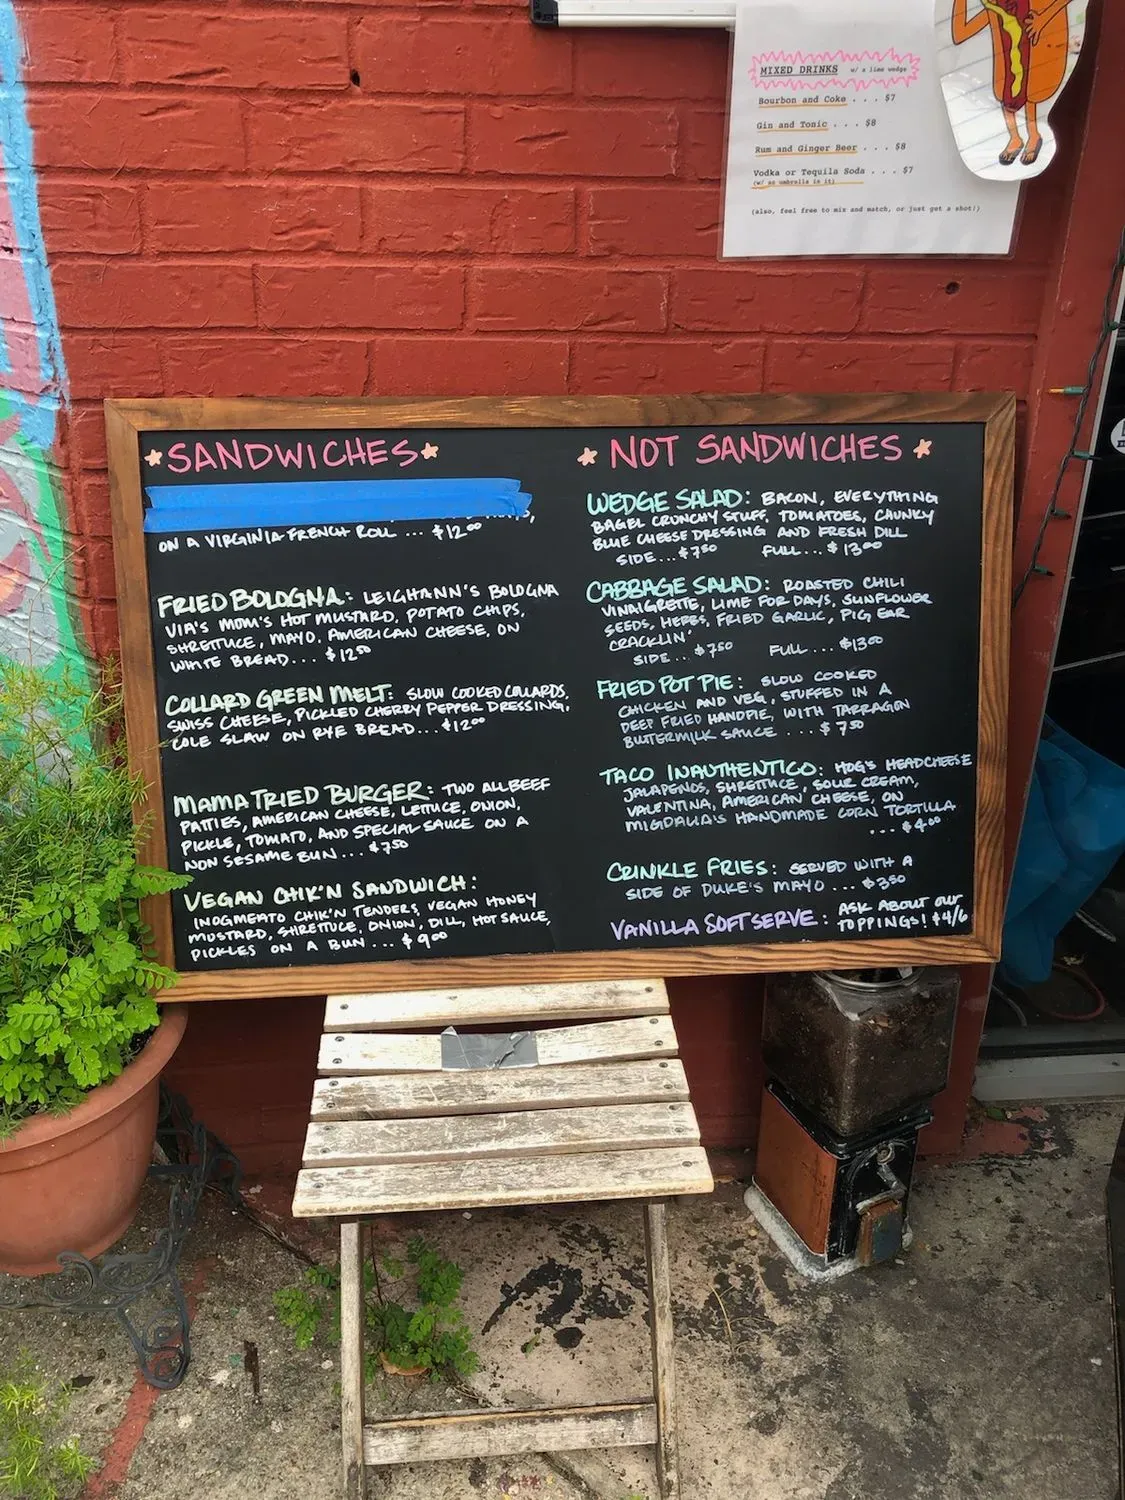 MIXED DRINKS w/ a lime wedge
Bourbon and Coke . . . $7
Gin and Tonic . . . $8
Rum and Ginger Beer . . . $8
Vodka or Tequila Soda . . . $7
(w/ an umbrella in it)
(also, feel free to mix and match, or just get a shot!)
SANDWICHES
ON A VIRGINIA FRENCH ROLL ... $12.00
FRIED BOLOGNA: LEIGHANN'S BOLOGNA
VIA'S MOM'S HOT MUSTARD, POTATO CHIPS,
SHRETTUCE, MAYO, AMERICAN CHEESE, ON
WHITE BREAD... $12.50
COLLARD GREEN MELT: SLOW COOKED COLLARDS,
SWISS CHEESE, PICKLED CHERRY PEPPER DRESSING,
COLE SLAW ON RYE BREAD... $12.00
MAMA TRIED BURGER: TWO ALL BEEF
PATTIES, AMERICAN CHEESE, LETTUCE, ONION,
PICKLE, TOMATO, AND SPECIAL SAUCE ON A
NON SESAME BUN... $7.50
VEGAN CHIK'N SANDWICH:
INOGMEATO CHIK'N TENDERS, VEGAN HONEY
MUSTARD, SHRETTUCE, ONION, DILL, HOT SAUCE,
PICKLES ON A BUN... $9.00
NOT SANDWICHES
WEDGE SALAD: BACON, EVERYTHING
BAGEL CRUNCHY STUFF, TOMATOES, CHUNKY
BLUE CHEESE DRESSING AND FRESH DILL
SIDE... $7.50 FULL... $13.00
CABBAGE SALAD: ROASTED CHILI
VINAIGRETTE, LIME FOR DAYS, SUNFLOWER
SEEDS, HERBS, FRIED GARLIC, PIG EAR
CRACKLIN'
SIDE... $7.50 FULL... $13.00
FRIED POT PIE: SLOW COOKED
CHICKEN AND VEG, STUFFED IN A
DEEP FRIED HANDPIE, WITH TARRAGON
BUTTERMILK SAUCE .... $7.50
TACO INAUTHENTICO: HOG'S HEADCHEESE
JALAPENOS, SHRETTUCE, SOUR CREAM,
VALENTINA, AMERICAN CHEESE, ON
MIGDALIA'S HANDMADE CORN TORTILLA
... $4.00
CRINKLE FRIES: SERVED WITH A
SIDE OF DUKE'S MAYO ... $3.50
VANILLA SOFT SERVE: ASK ABOUT OUR
TOPPINGS! $4/6